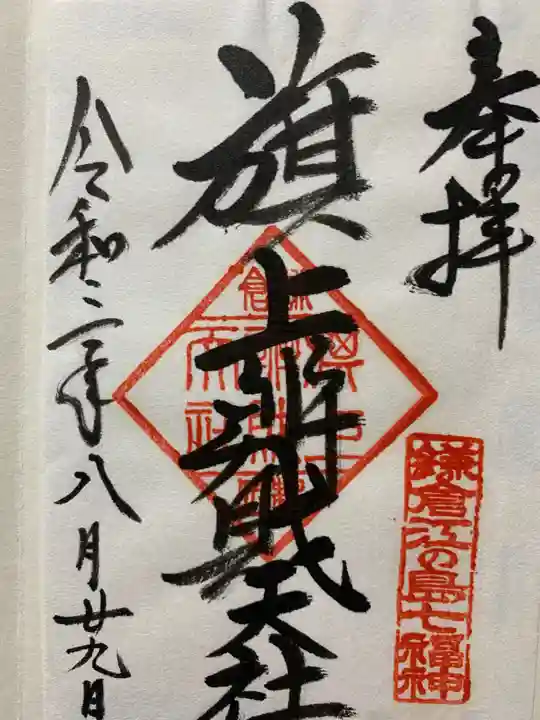 奉拝
鎌倉江の島七福神
旗上弁財天社
令和二年八月廿九日